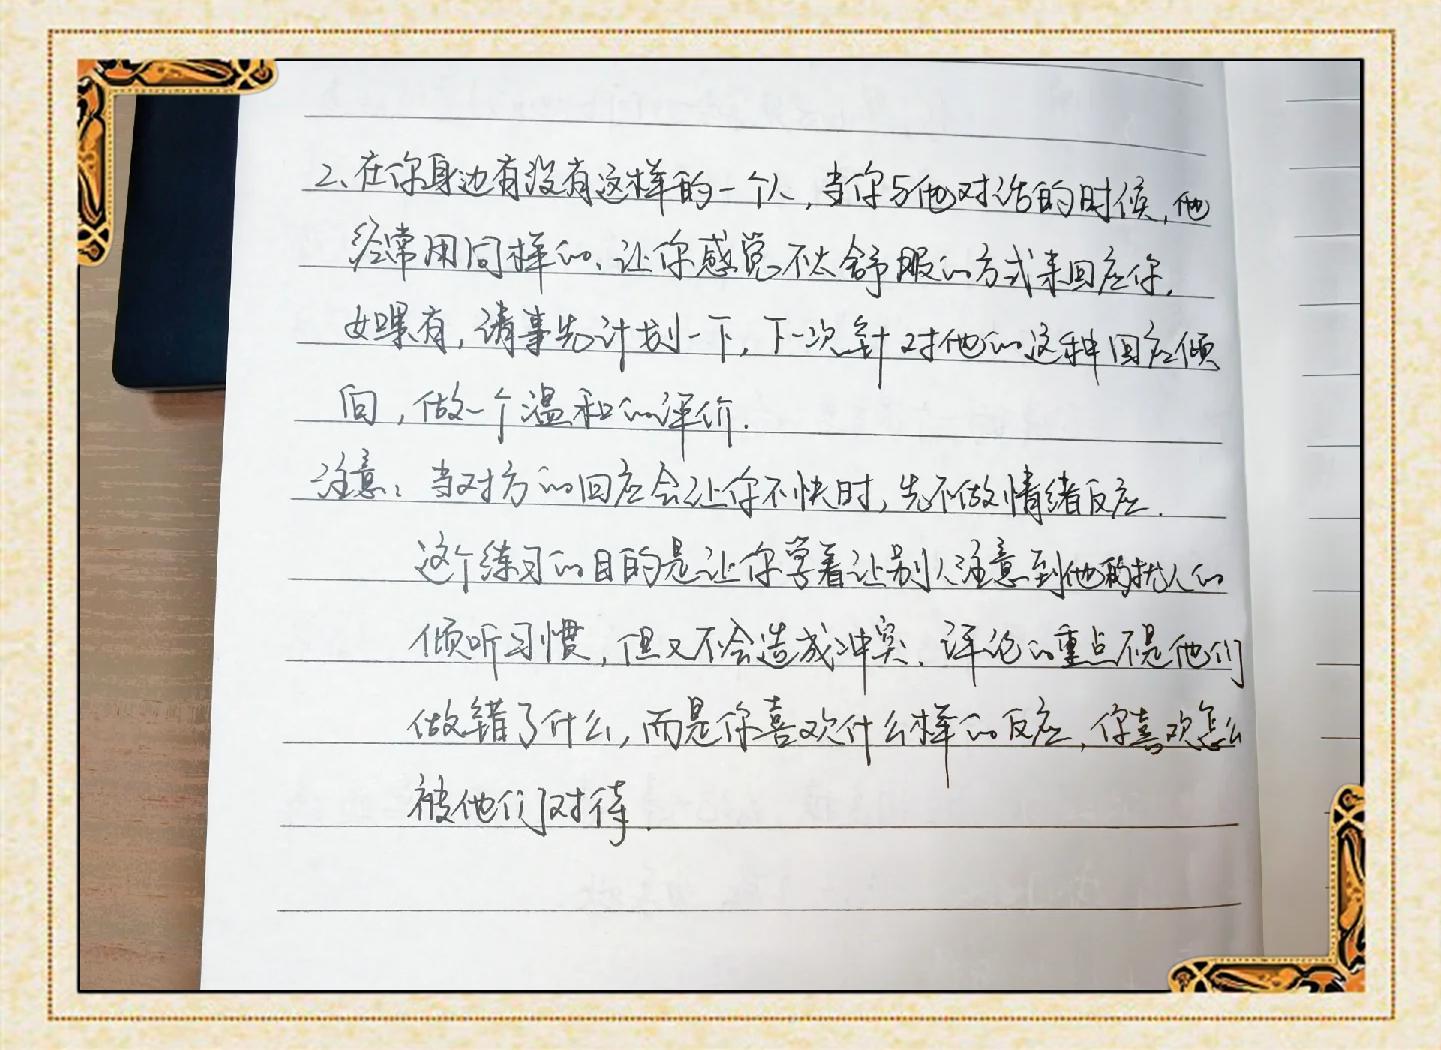 2、在你身边有没有这样的一个人，当你与他对话的时候，他
经常用同样的、让你感觉不太舒服的方式来回应你.
如果有，请事先计划一下，下一次针对他的这种回应倾
向，做一个温和的评价.
注意：当对方的回应会让你不快时，先不做情绪反应.
这个练习的目的是让你学着让别人注意到他扰人的
倾听习惯，但又不会造成冲突.评论的重点不是他们
做错了什么，而是你喜欢什么样的反应，你喜欢怎么
被他们对待.